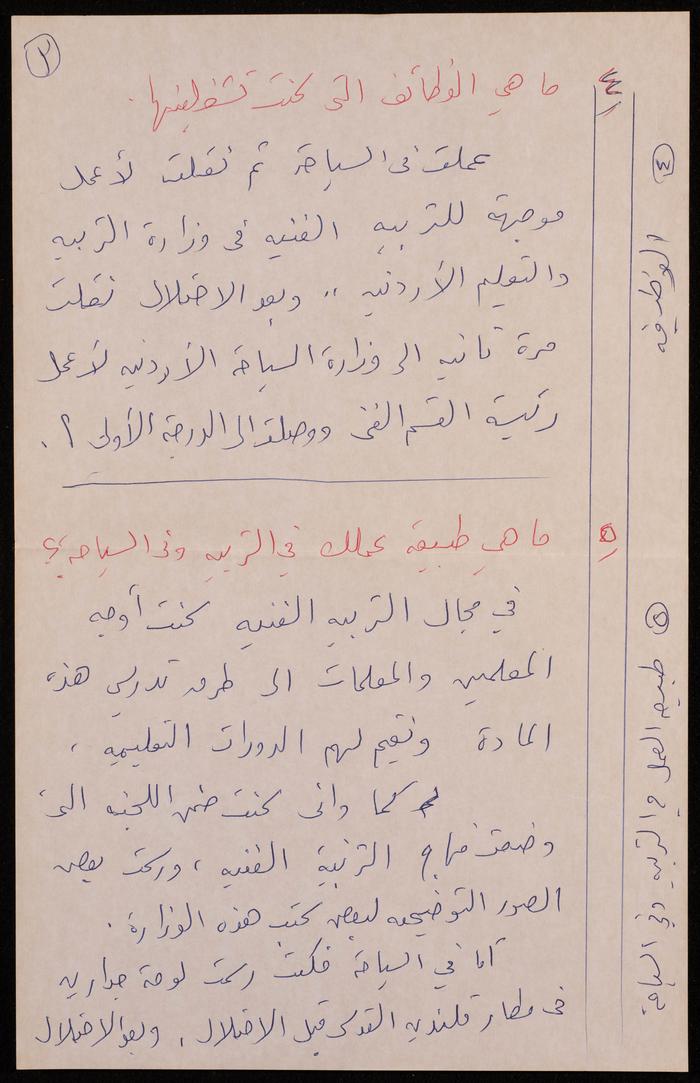 ٣
٤ ما هي الوظائف التى كنت تشغلينها.
عملت فى السياحة ثم نقلت لأعمل
موجهة للتربيه الفنيه فى وزارة التربيه
والتعليم الأردنيه .. وبعد الاحتلال نقلت
مرة ثانيه الى وزارة السياحة الأردنيه لأعمل
رئيسة القسم الفنى ووصلت الى الدرجة الأولى ؟.
٥ ما هي طبيعة عملك في التربيه وفى السياحه؟
في مجال التربيه الفنيه كنت أوجه
المعلمين والمعلمات الى طرق تدريس هذه
المادة ونقيم لهم الدورات التعليميه ،
كما وانى كنت ضمن اللجنه التى
وضعت منهاج التربية الفنيه ، ورسمت بعض
الصور التوضيحيه لبعض كتب هذه الوزارة .
أما في السياحة فكنت رسمت لوحة جداريه
فى مطار قلنديه القدس قبل الاحتلال ، وبعد الاحتلال
٤ الوظيفه
٥ طبيعة العمل في التربيه وفي السياحة